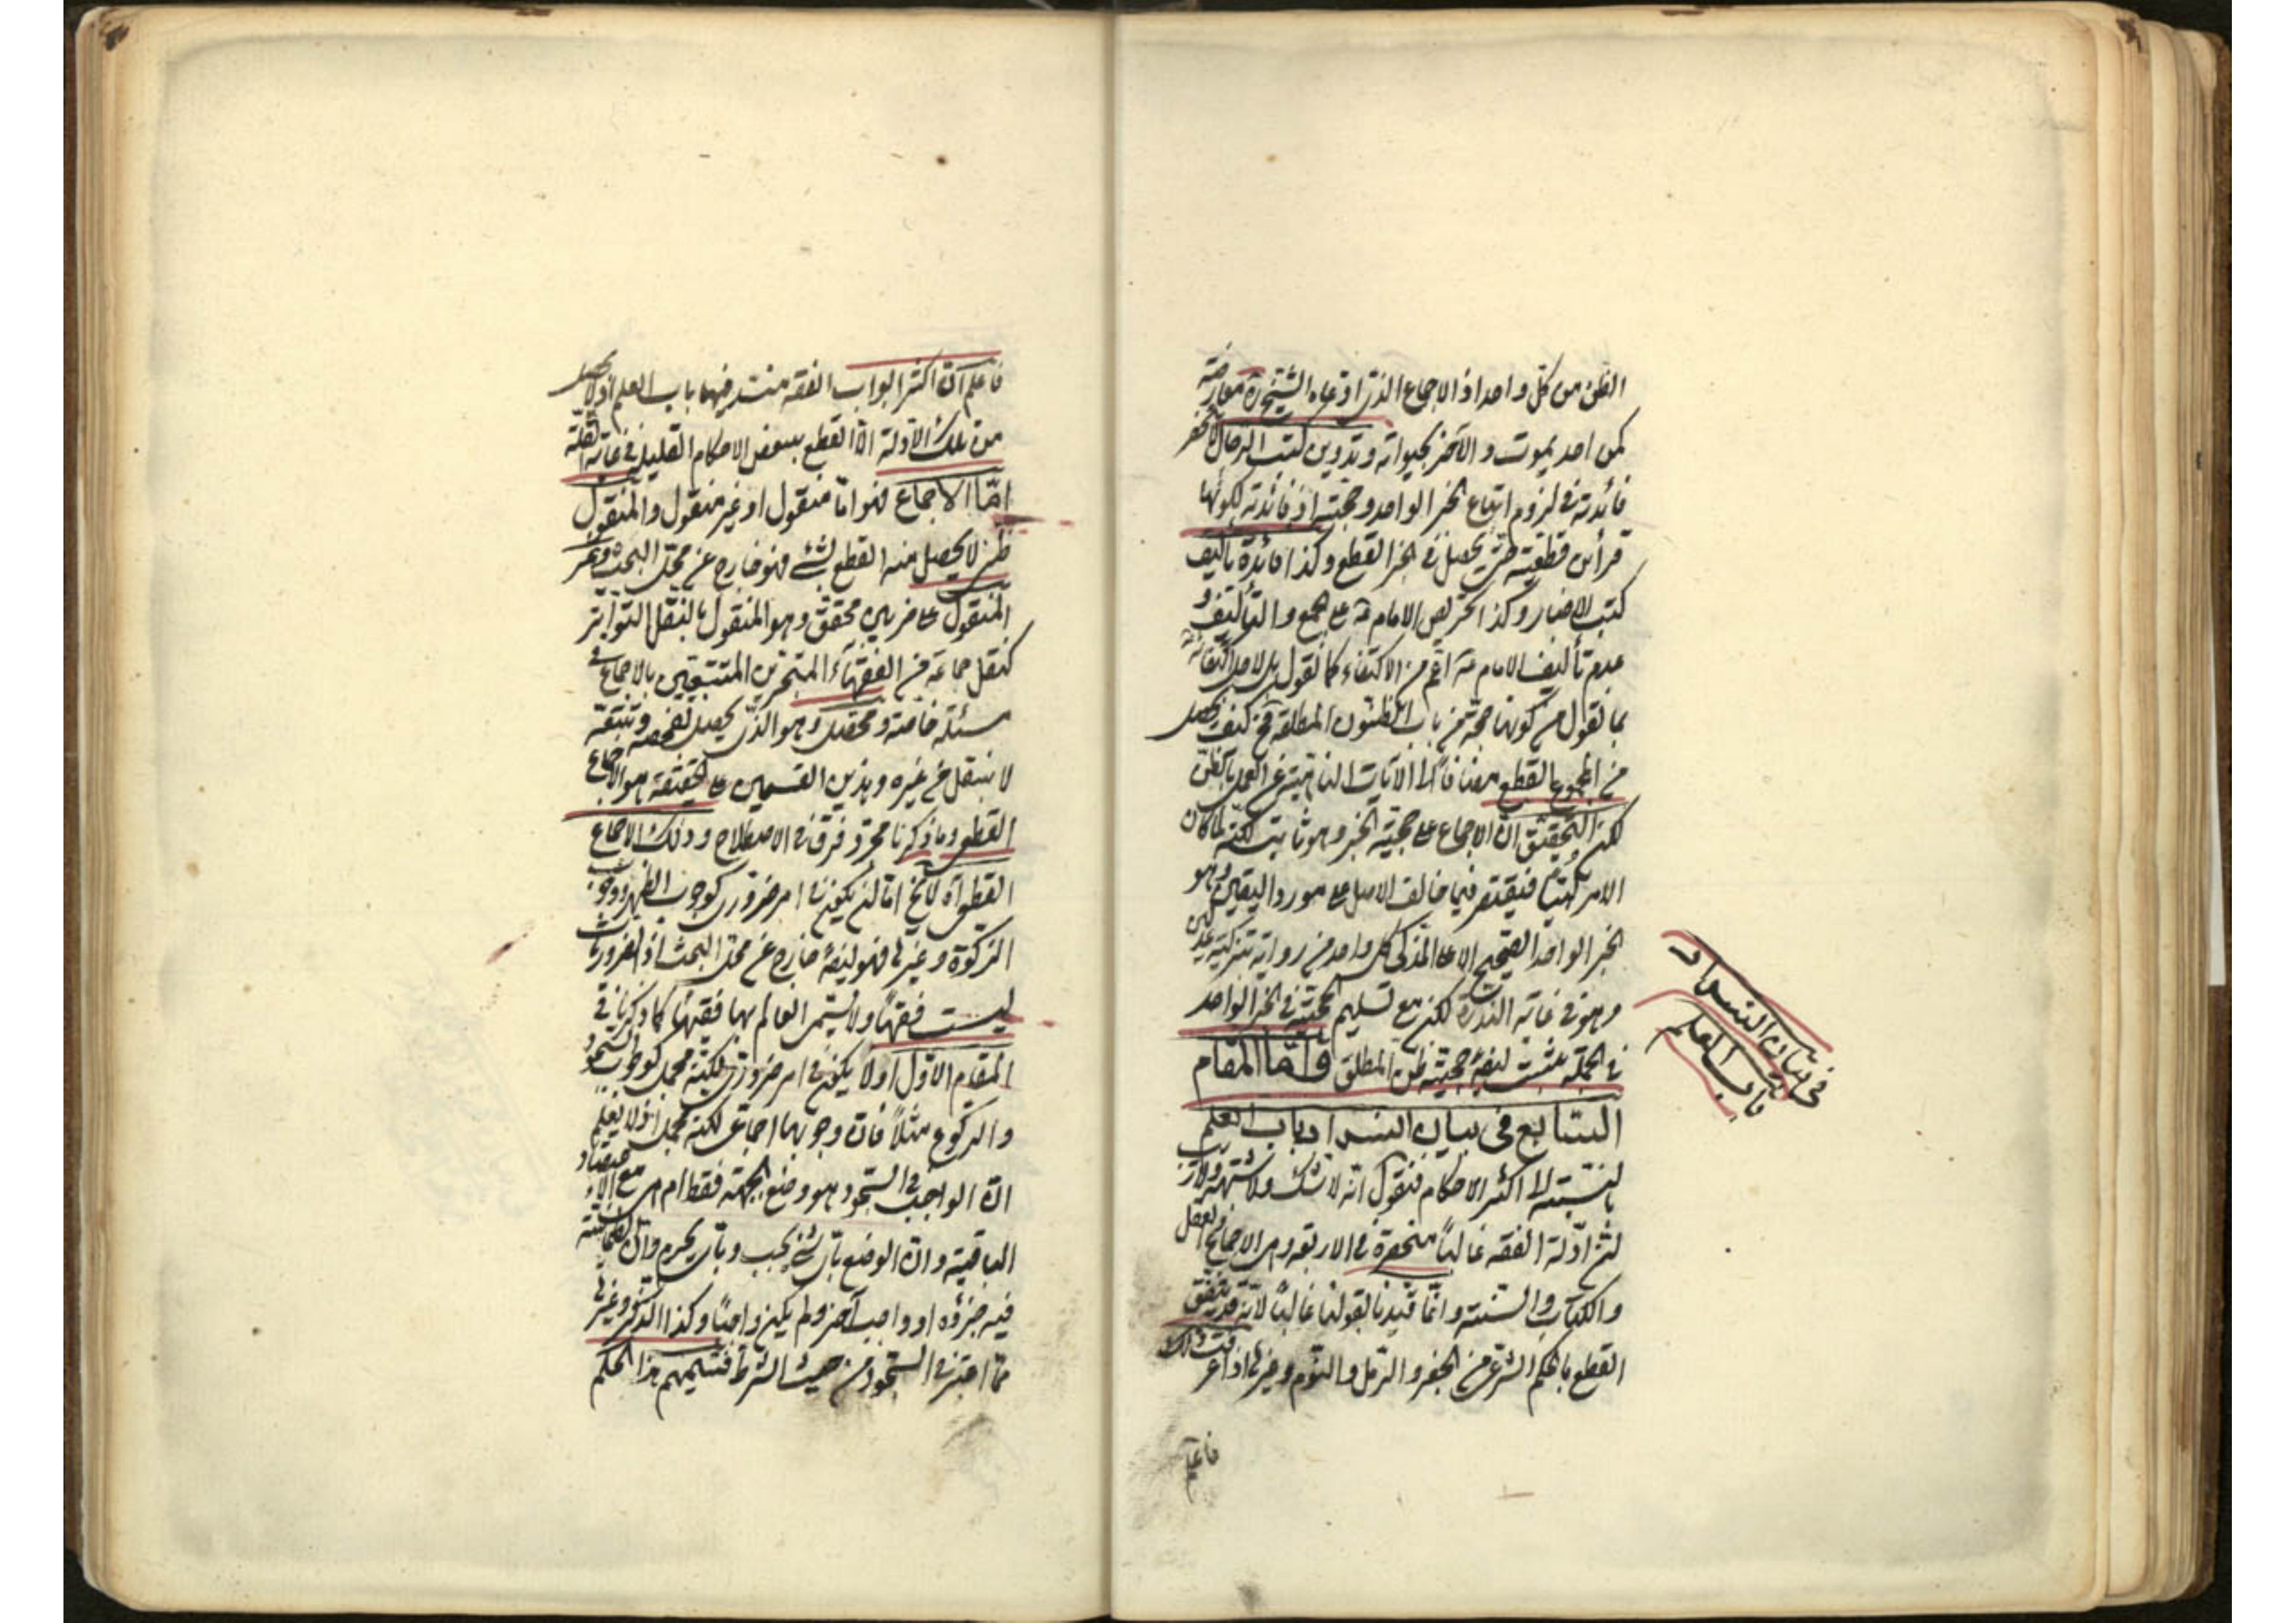 الظن من كل واحد اذ الاجماع الذي ادعاه الشيخ ره معارضة
كمن احد يموت و الآخر بحيوته و تدوين كتب الرجال لا تنحصر
فائدته في لزوم اتباع الخبر الواحد و حجيته اذ فائدته لكونها
قرائن قطعية حتى يحصل في الخبر القطع و كذا فائدة تأليف
كتب الاخبار و كذا تحريص الامام ع على الجمع و التأليف و
عدم تأليف الامام ع اعم من الاكتفاء كما نقول بل لاجل اكتفائه
بما نقول من كونها حجة من باب الظنون المطلقة فح كيف يحصل
من المجموع القطع مضافا الى الآيات الناهية عن العمل بالظن
لكن التحقيق ان الاجماع على حجية الخبر و هو ثابت لكنه لما كان
الامر لبيّا فيقتصر فيما خالف الاصل على مورد اليقين و هو
الخبر الواحد الصحيح الاعلى المذكى كل واحد من رواته بتزكية عدلين
و هو في غاية الندرة لكن مع تسليم حجيته في الخبر الواحد
في الجملة يثبت ايضا حجية ظن المطلق و امّا المقام
السابع في بيان انسداد باب العلم
بالنسبة الى اكثر الاحكام فنقول انه لا شك و لا شبهة و لا ريب
في ان ادلة الفقه غالبا منحصرة في الاربعة و هي الاجماع و العقل
و الكتاب و السنة و انما قيدنا بقولنا غالبا لانه قد يتفق
القطع بالحكم الشرعي من الجفر و الرمل و النوم و غيرها اذا عرفت ذلك
فاعلم
في بيان انسداد
باب العلم
فاعلم ان اكثر ابواب الفقه منسد فيها باب العلم اذ لا يحصل
من تلك الادلة الا القطع ببعض الاحكام القليل في غاية القلة
امّا الاجماع فهو اما منقول او غير منقول و المنقول
ظني لا يحصل منه القطع بشيء فهو خارج عن محل البحث و غير
المنقول على ضربين محقق و هو المنقول بالنقل المتواتر
كنقل جماعة من الفقهاء المتبحرين المتتبعين بالاجماع في
مسئلة خاصة و محصل و هو الذي يحصل بفحصه و تتبعه
لا بنقل من غيره و هذين القسمين على الحقيقة هو الاجماع
القطعي و ما ذكرنا مجرد فرق في الاصطلاح و ذلك الاجماع
القطعي اه لا يخ اما ان يكون في امر ضروري كوجوب الظهر و وجوب
الزكوة و غيرها فهو ايضا خارج عن محل البحث اذ الضروريات
ليست فقها و لا يسمى العالم بها فقيها كما ذكرنا في
المقام الاول او لا يكون في امر ضروري لكنه مجمل كوجوب السجود
و الركوع مثلا فان وجوبهما اجماعي لكنه مجمل اذ لا يعلم
ان الواجب في السجود هو وضع الجبهة فقط ام هي مع الاعضاء
الباقية و ان الوضع بأي شيء يجب و بأي يحرم و ان الطمأنينة
فيه جزؤه او واجب آخر و لم يكن واجبا و كذا الذكر و غيرها
مما اعتبر في السجود من حيث الشرط فتتميم هذا الحكم